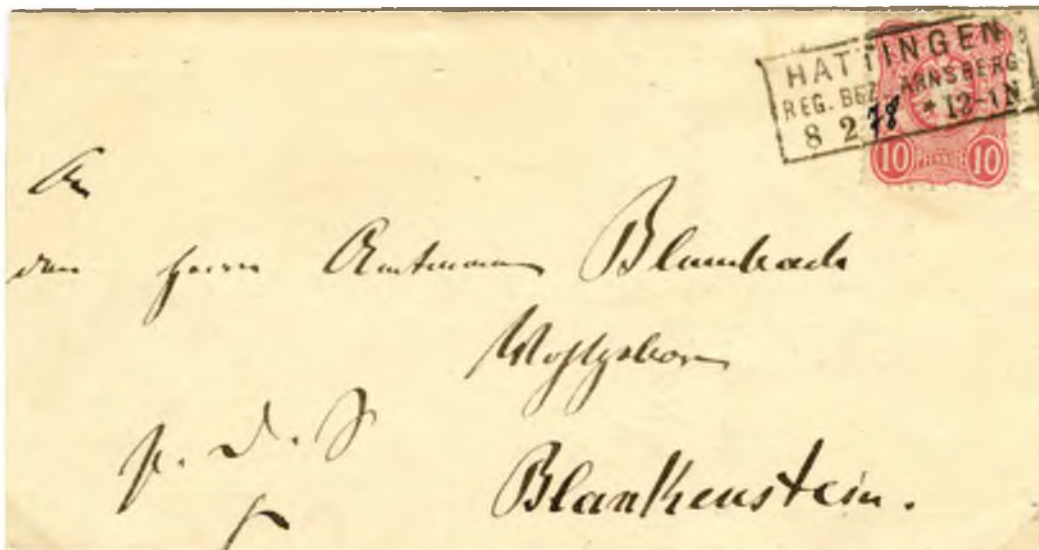 HATTINGEN
REG. BEZ. ARNSBERG
8 2 78 * 12-1 N
10 PFENNIG 10
An
den Herrn Amtmann Blumbach
Wohlgeboren
Blankenstein.